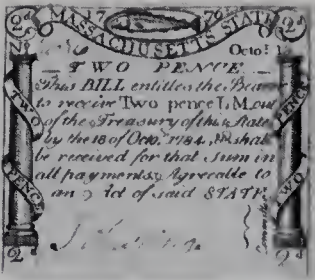 2d 17 76 2d
MASSACHUSETTS STATE
No Octo.r 18
TWO PENCE
This BILL entitles the Bearer
to receive Two pence L.M. out
of the Treasury of this State
by the 18 of Octo.r 1784, & shall
be received for that Sum in
all payments Agreeable to
an Act of said STATE
Committee
TWO
PENCE
PENCE
TWO
2d 2d